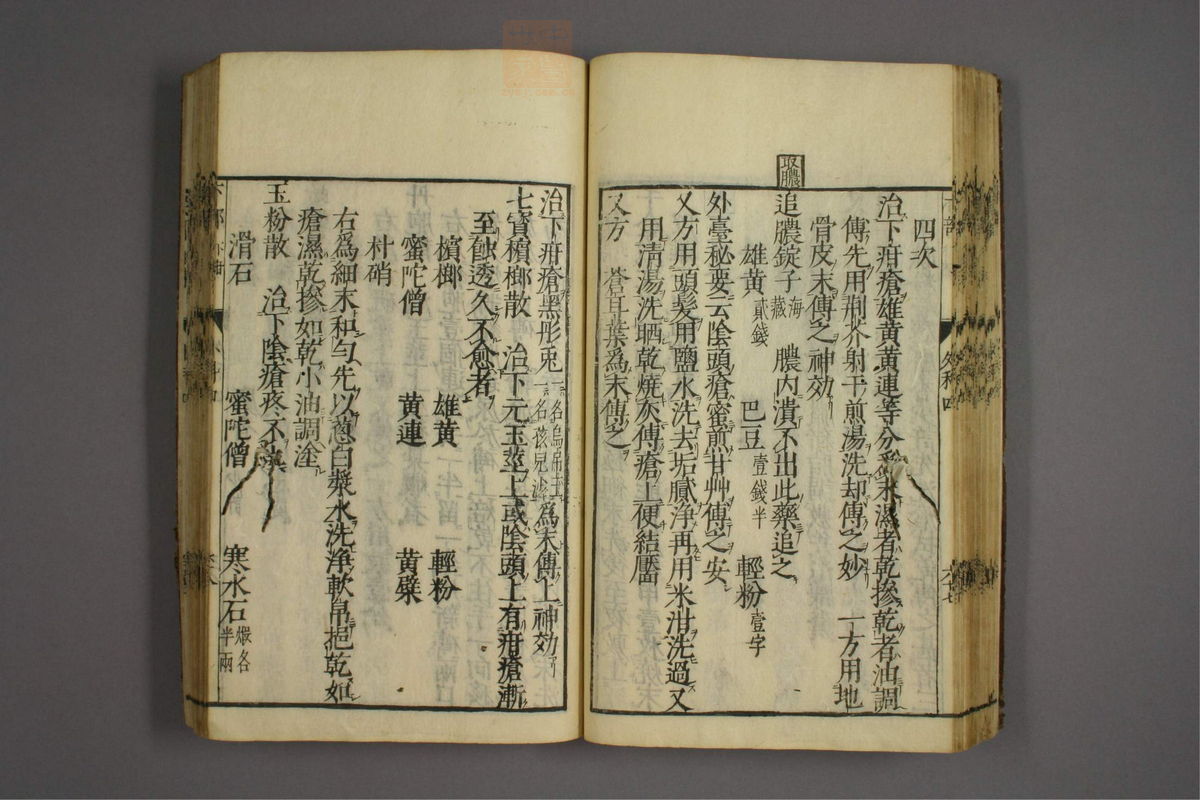 四次
治下疳瘡雄黃黃連等分爲末濕者乾摻乾者油調
傅先用荆芥射干煎湯洗却傅之妙　一方用地
骨皮末傅之神効
取膿
追膿錠子　海藏　膿內潰不出此藥追之
雄黃貳錢　巴豆壹錢半　輕粉壹字
外臺秘要云陰頭瘡蜜煎甘艸傅之安
又方用頭髮用鹽水洗去垢膩浄再用米泔洗過又
用清湯洗晒乾燒灰傅瘡上便結靨
又方　蒼耳葉爲末傅之
治下疳瘡黑彤兎一名烏吊玉一名孩兒為末傅上神効
七寳檳榔散　治下元玉莖上或陰頭上有疳瘡漸
至蝕透久不愈者
檳榔　雄黃　輕粉
蜜陀僧　黃連　黃檗
朴硝
右爲細末和勻先以葱白漿水洗浄軟帛挹乾如
瘡濕乾摻如乾小油調塗
玉粉散　治下陰瘡疼不
滑石　蜜陀僧　寒水石煅各半兩